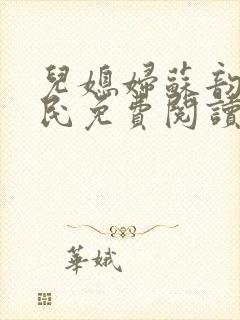 兒媳婦蘇韵
民免費閱讀
華娥